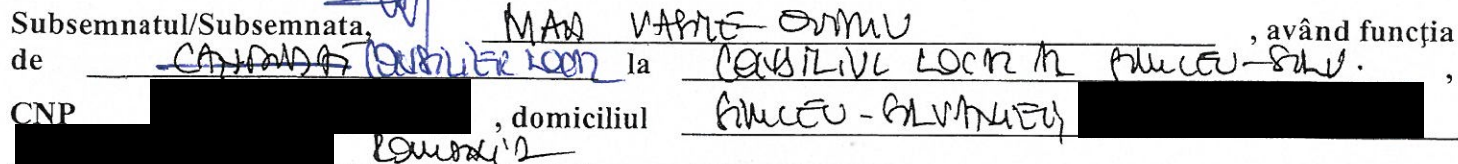 Subsemnatul/Subsemnata, MAN VASILE-OVIDIU, având funcţia
de CANDIDAT CONSILIER LOCAL la CONSILIUL LOCAL AL ŞIMLEU-SILV.,
CNP , domiciliul ŞIMLEU-SILVANIEI,
ROMANIA